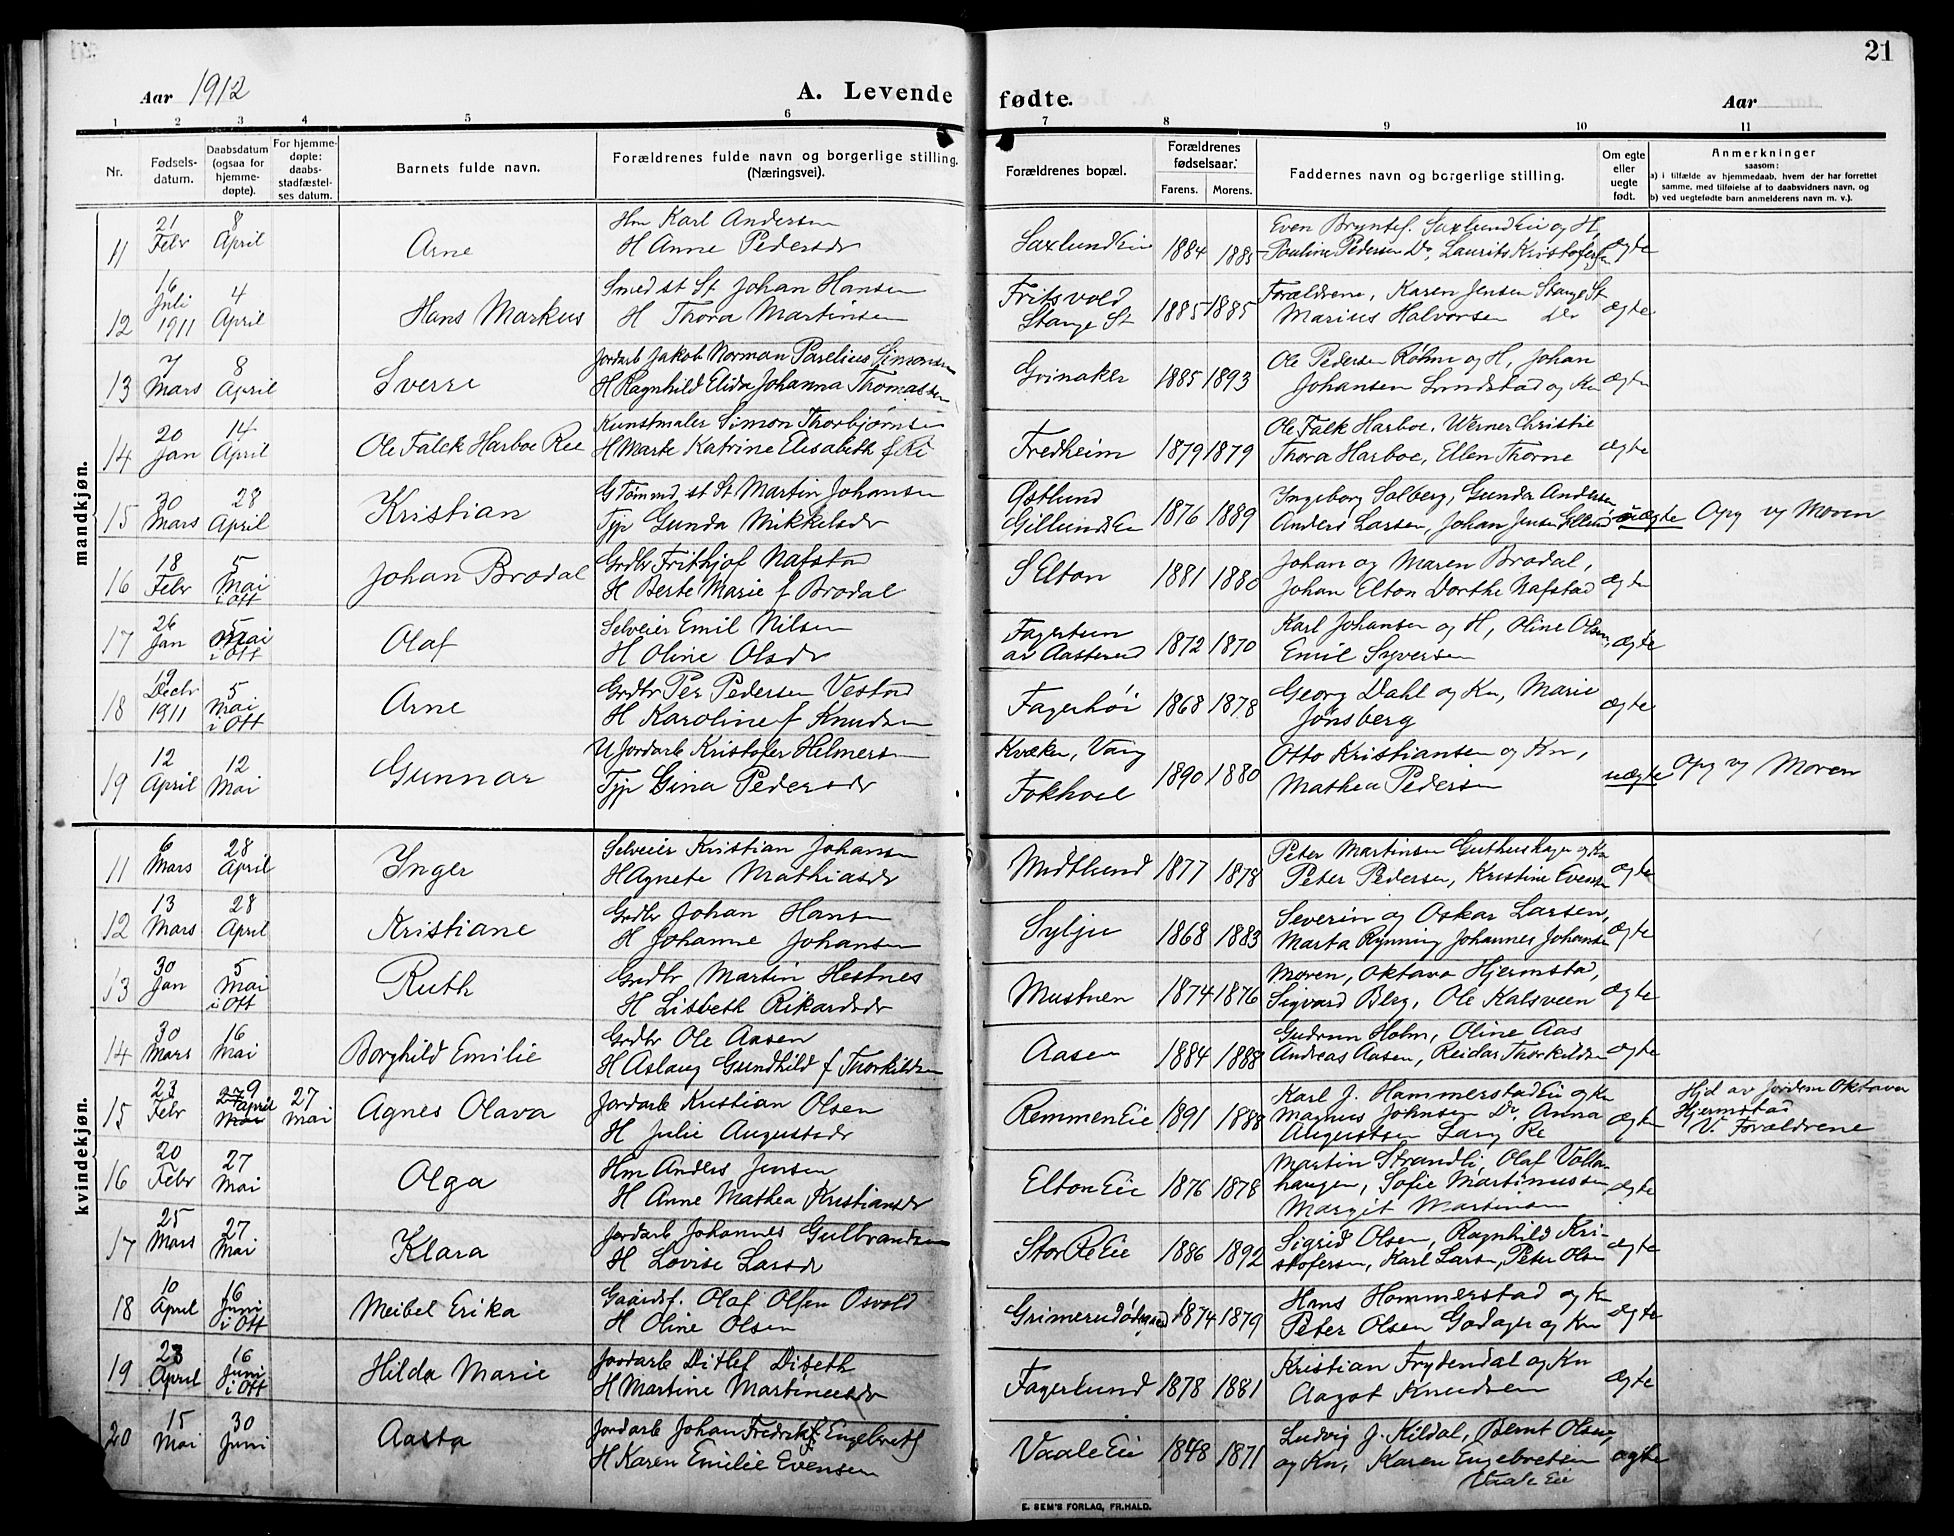 21
Aar 1912
A. Levende fødte.
Aar
1 2 3 4 5 6 7 8 9 10 11
Nr.
Fødsels-
datum.
Daabsdatum
(ogsaa for
hjemme-
døpte).
For hjemme-
døpte:
daabs-
stadfæstel-
ses datum.
Barnets fulde navn.
Forældrenes fulde navn og borgerlige stilling.
(Næringsvei).
Forældrenes bopæl.
Forældrenes
fødselsaar.
Farens. Morens.
Faddernes navn og borgerlige stilling.
Om egte
eller
uegte
født.
Anmerkninger
saasom:
a) i tilfælde av hjemmedaab, hvem der har forrettet
samme, med tilføielse af to daabsvidners navn, og
b) ved uegtefødte barn anmelderens navn m. v.).
mandkjøn.
11
21
Febr
8
April
Arne
Hm Karl Andersen
H Anne Pedersdr
Saxlund Eie
1884 1885
Even Bryntes. Saxlund Eie og H,
Pauline Pedersen Do, Laurits Kristofersen
ægte
12
16
Juli
1911
4
April
Hans Markus
Smed st St Johan Hansen
H Thora Martinsen
Fritsvold
Stange St
1885 1885
Forældrene, Karen Jensen Stange St
Marius Halvorsen do
ægte
13
7
Mars
8
April
Sverre
Jordarb Jakob Norman Parelius Simonsen
H Ragnhild Elida Johanna Thomassen
Grinaker
1885 1893
Ole Pedersen Røhne og H, Johan
Johansen Lundstad og Kn
ægte
14
20
Jan
14
April
Ole Falck Harboe Ree
Kunstmaler Simon Thorbjørnsen
H Marte Katrine Elisabeth f Re
Fredheim
1879 1879
Ole Falk Harboe, Werner Christie
Thora Harboe, Ellen Thorne
ægte
15
30
Mars
28
April
Kristian
G Tømmd st St Martin Johansen
Tjp Gunda Mikkelsdr
Østlund
Gillund Eie
1876 1889
Ingeborg Solberg, Gunda Andersen
Anders Larsen, Johan Jensen Gillund
uægte
Opg v Moren
16
18
Febr
5
Mai
i Ott
Johan Brodal
Grdbr Frithjof Nafstad
H Berte Marie f Brodal
S Elton
1881 1880
Johan og Maren Brodal,
Johan Elton Dorthe Nafstad
ægte
17
26
Jan
5
Mai
i Ott
Olaf
Selveier Emil Nilsen
H Oline Olsdr
Fagertun
av Aasterud
1872 1870
Karl Johansen og H, Oline Olsen,
Emil Syversen
ægte
18
19
Decbr
1911
5
Mai
i Ott
Arne
Grdbr Per Pedersen Vestad
H Karoline f Knudsen
Fagerhøi
1868 1878
Georg Dahl og Kn, Marie
Jønsberg
ægte
19
12
April
12
Mai
Gunnar
U Jordarb Kristofer Helmersen
Tjp Gina Pedersdr
Kvæken, Vang
Fokhoel
1890 1880
Otto Kristiansen og Kn,
Mathea Pedersen
uægte
Opg v Moren
kvindekjøn.
11
6
Mars
28
April
Inger
Selveier Kristian Johansen
H Agnete Mathiasdr
Midtlund
1877 1878
Peter Martinsen Guthushagen og Kn
Peter Pedersen, Kristine Evensen
ægte
12
13
Mars
28
April
Kristiane
Grdbr Johan Hansen
H Johanne Johansen
Sylju
1868 1883
Severin og Oskar Larsen,
Marta Rynning Johannes Johansen
ægte
13
30
Jan
5
Mai
i Ott
Ruth
Grdbr Martin Hestnes
H Lisbeth Rikardsdr
Mustuen
1874 1876
Moren, Oktava Hjermstad,
Sigvard Berg, Ole Kalsveen
ægte
14
30
Mars
16
Mai
Borghild Emilie
Grdbr Ole Aasen
H Aslaug Gundhild f Thorkildsen
Aasen
1884 1888
Gudrun Holm, Oline Aas
Andreas Aasen, Reidar Thorkildsen
ægte
15
23
Febr
27 9
April
Mai
27
Mai
Agnes Olava
Jordarb Kristian Olsen
H Julie Augustsdr
Remmen Eie
1891 1888
Karl J. Hammerstad Eie og Kn
Magnus Johnsen Do, Anna
Augustsen Lang Re
ægte
Hjd av Jordem Oktava
Hjermstad
V. Forældrene
16
20
Febr
27
Mai
Olga
Hm Anders Jensen
H Anne Mathea Kristiansdr
Elton Eie
1876 1878
Martin Strandli, Olaf Volla-
haugen, Sofie Martinussen
Margit Martinsen
ægte
17
25
Mars
27
Mai
Klara
Jordarb Johannes Gulbrandsen
H Lovise Larsdr
Stor Re Eie
1886 1892
Sigrid Olsen, Ragnhild Kri-
stofersen, Karl Larsen, Peter Olsen
ægte
18
10
April
16
Juni
i Ott
Meibel Erika
Gaardsf. Olaf Olsen Osvold
H Oline Olsen
Grimerudødegaard
1874 1879
Hans Hommerstad og Kn
Peter Olsen Godager og Kn
ægte
19
23
April
16
Juni
i Ott
Hilda Marie
Jordarb Ditlef Diseth
H Martine Martineusdr
Fagerlund
1878 1881
Kristian Frydendal og Kn
Aagot Knudsen
ægte
20
15
Mai
30
Juni
Aasta
Jordarb Johan Fredrik Engebrets
H Karen Emilie Evensen
Vaale Eie
1848 1871
Ludvig J. Kildal, Bernt Olsen
og Kn, Karen Engebretsen
Vaale Eie
ægte
E. SEM'S FORLAG, FR.HALD.